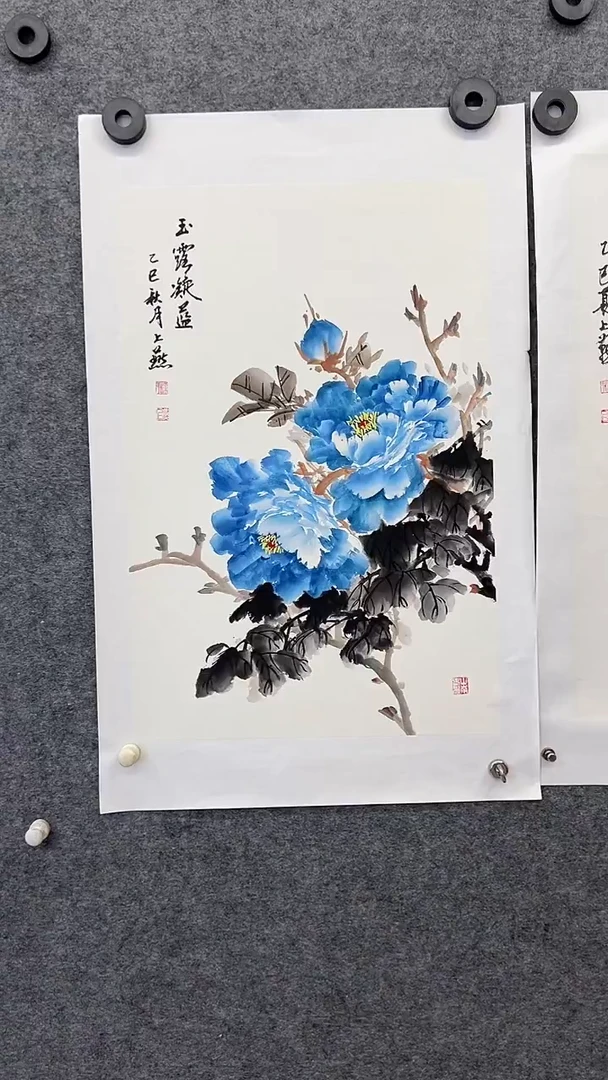 玉露凝蓝
乙巳秋月上燕
乙巳夏上燕